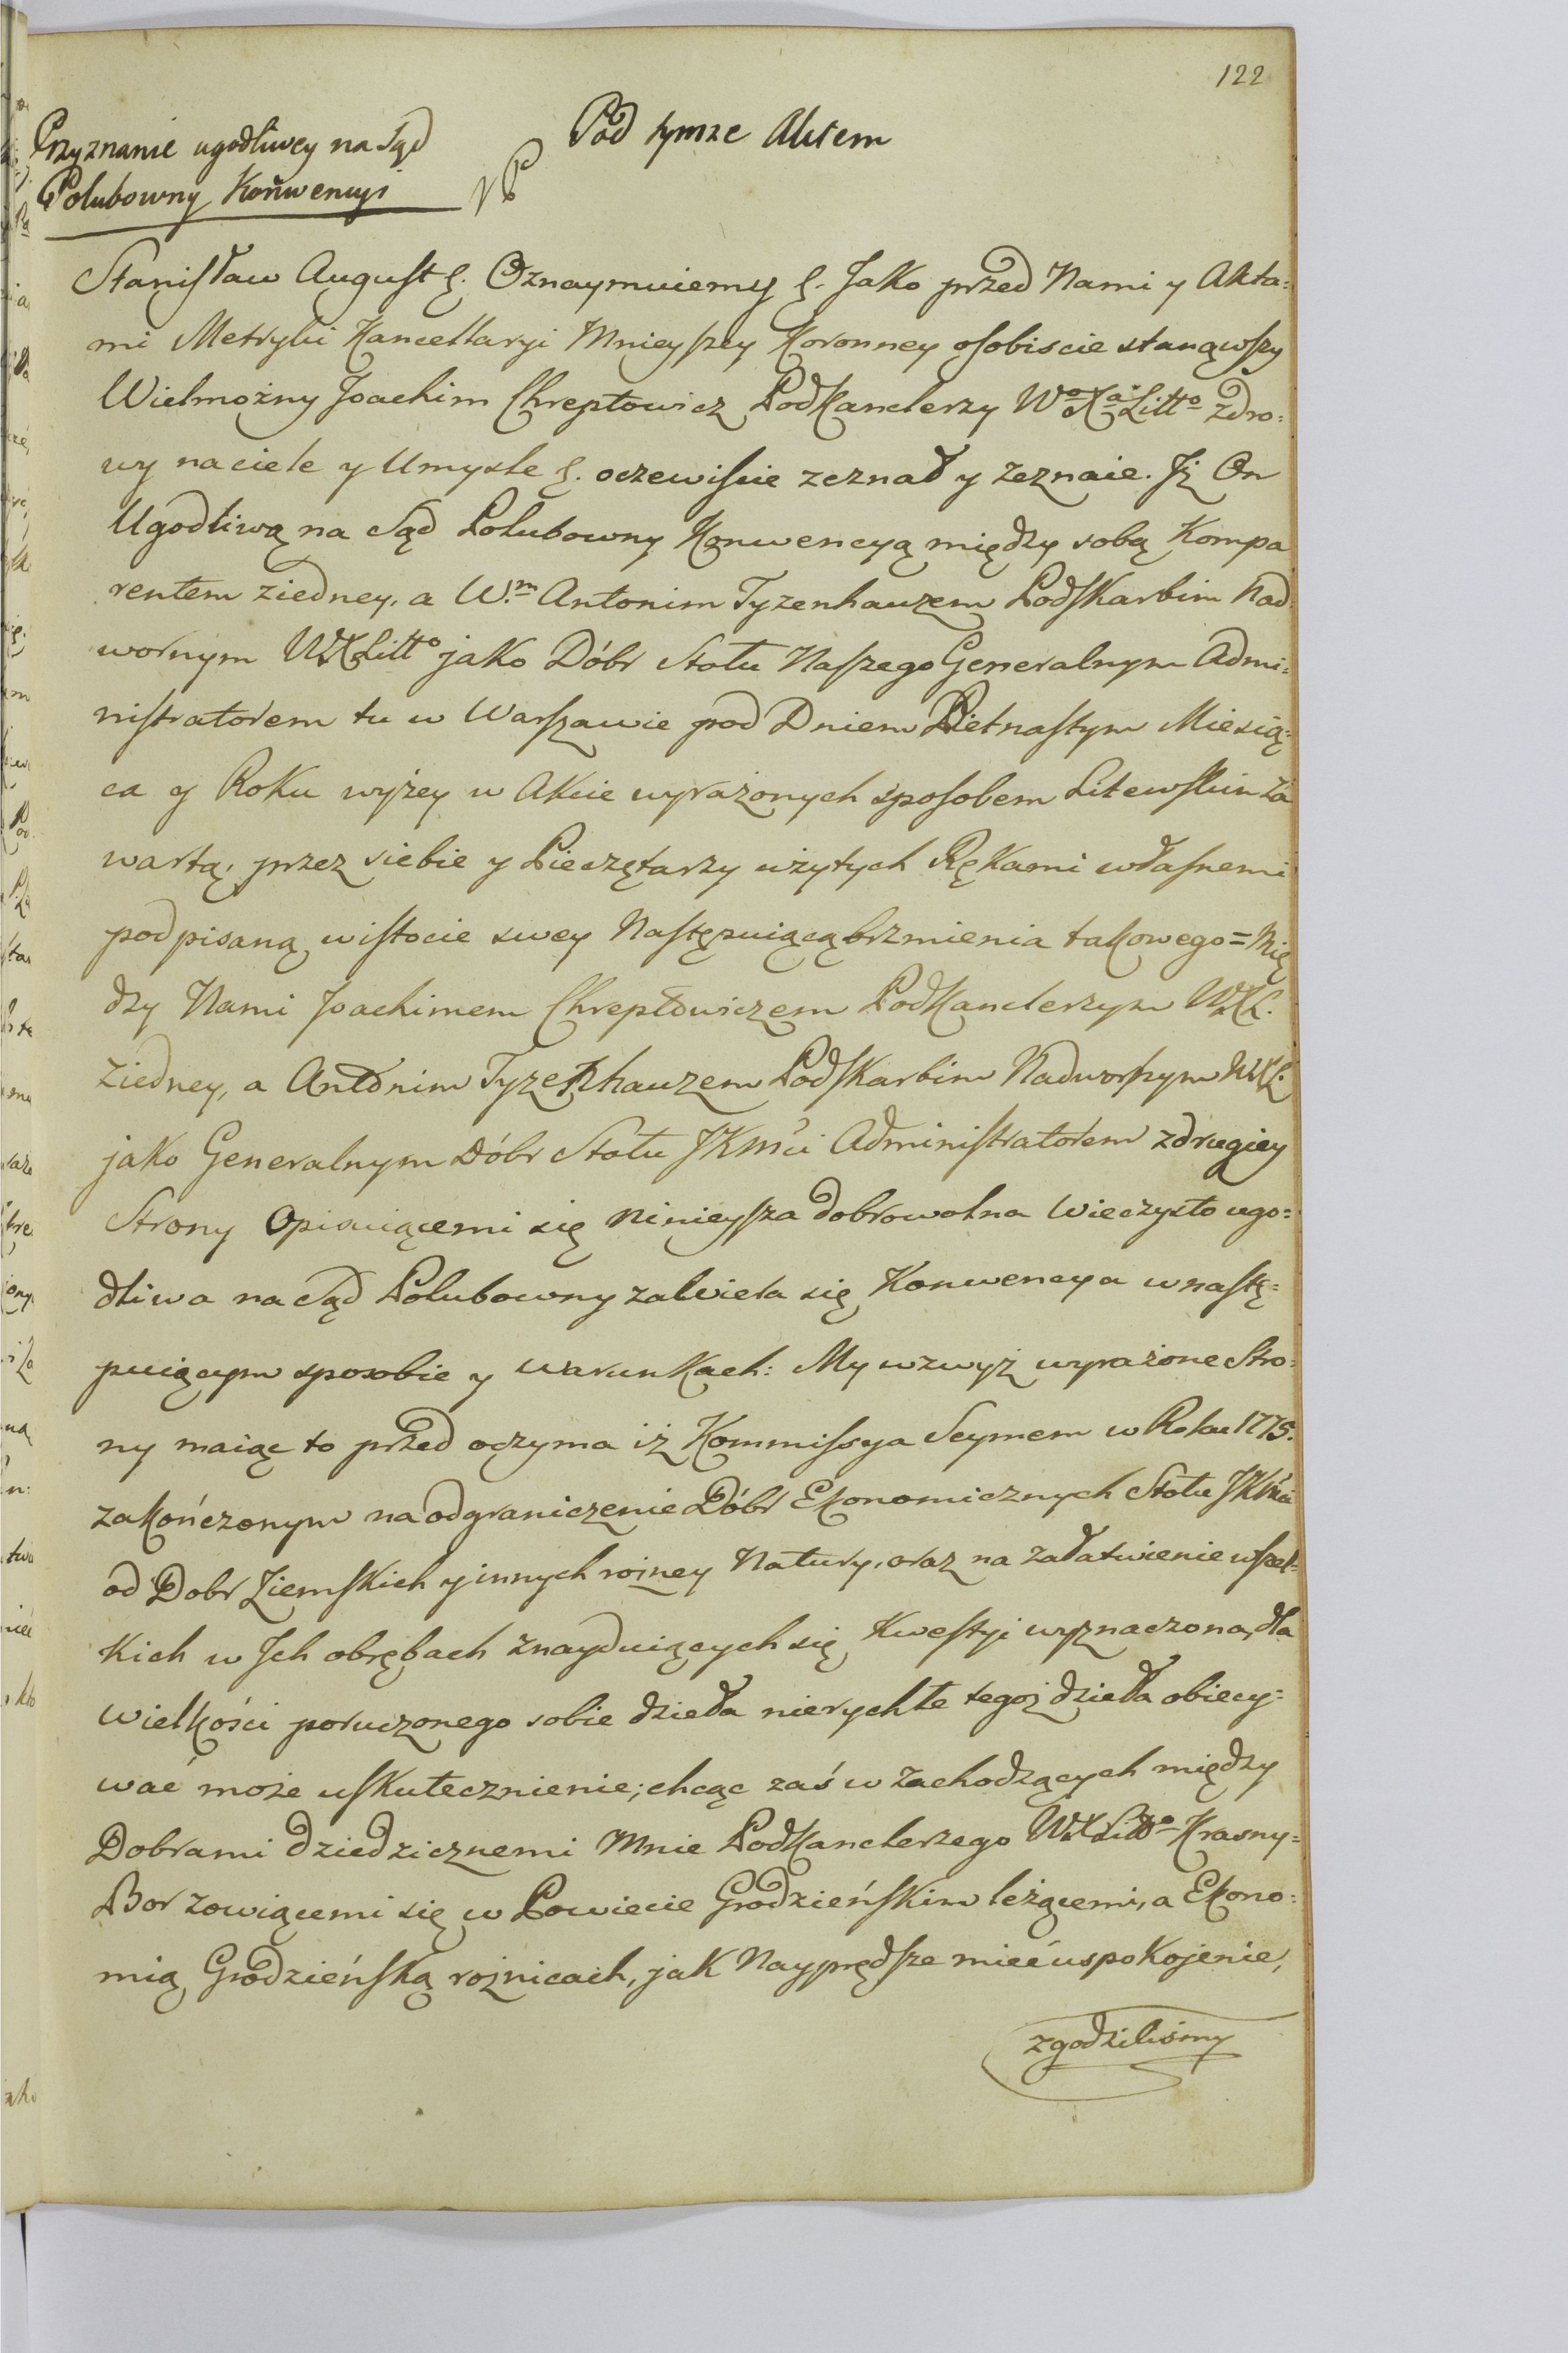 122
Przyznanie ugodliwey na Sąd
Polubowny Konwencyi
Pod tymze Aktem
Stanisław August &. Oznaymuiemy &. Jako przed Nami y Akta=
mi Metryki Kancellaryi Mnieyszey Koronney osobiscie stanąwszy
Wielmożny Joachim Chreptowicz PodKanclerzy Wo Xa Litto zdro=
wy na ciele y Umysle &. oczewiscie zeznał y zeznaie. Jż On
Ugodliwą na Sąd Polubowny Konwencyą między sobą Kompa
rentem ziedney, a W.m Antonim Tyzenhauzem PodSkarbim Nad
wornym WXLitto jako Dóbr Stołu Naszego Generalnym Admi=
nistratorem tu w Warszawie pod Dniem Pietnastym Miesią=
ca y Roku wyżey w Akcie wyrażonych sposobem Litewskim Za
wartą, przez siebie y Pieczętarzy użytych RęKami własnemi
podpisaną wistocie swey Następuiącą brzmienia takowego = Mię
dzy Nami Joachimem Chreptowiczem PodKanclerzym WXL.
ziedney, a Antonim Tyzenhauzem PodSkarbim Nadwornym WXL.
jako Generalnym Dóbr Stołu JKMci Administratorem zdrugiey
Strony Opisuiącemi się ninieysza dobrowolna Wieczysto ugo=
dliwa na Sąd Polubowny zawiera się Konwencya wnastę=
puiącym sposobie y warunKach: My wzwyż wyrażone Stro=
ny maiąc to przed oczyma iż Kommissya Seymem w Roku 1775.
zakończonym na odgraniczenie Dóbr Ekonomicznych Stołu JKMci
od Dobr Ziemskich y innych rożney Natury, oraz na załatwienie wszel=
kich w Jch obrębach znayduiących się Kwestyi wyznaczona, dla
wielkości poruczonego sobie dzieła nierychłe tegoż dzieła obiecy=
wać może uskutecznienie; chcąc zaś w zachodzących między
Dobrami dziedzicznemi Mnie PodKanclerzego WXLitto Krasny=
Bor zowiącemi się w Powiecie Grodzieńskim leżącemi, a Ekono=
mią Grodzieńską rożnicach, jak Nayprędsze mieć uspokojenie,
zgodziliśmy